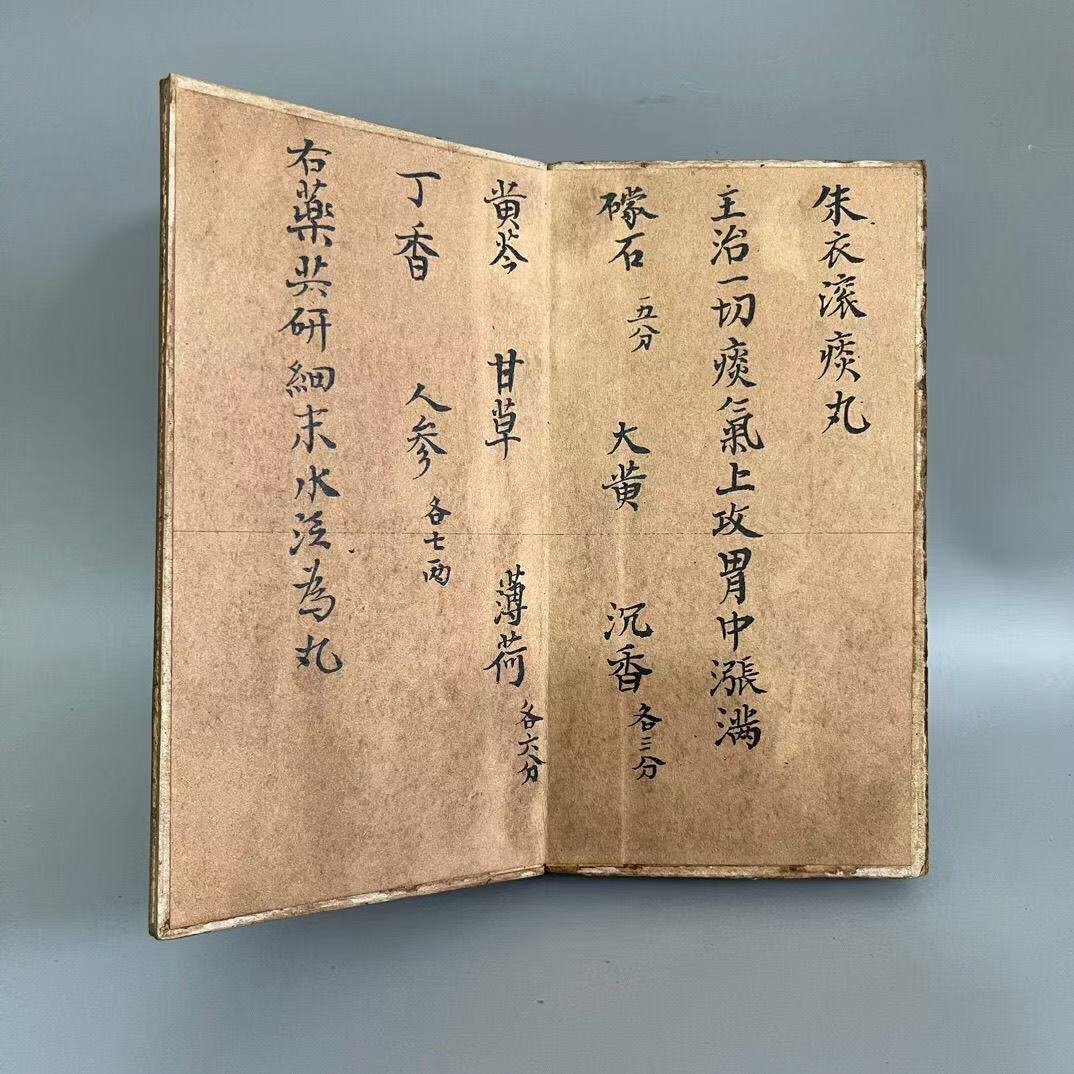 朱衣滚痰丸
主治一切痰氣上攻胃中漲满
礞石 五分 大黄 沉香 各三分
黄芩 甘草 薄荷 各六分
丁香 人参 各七两
右藥共研細末水泛為丸